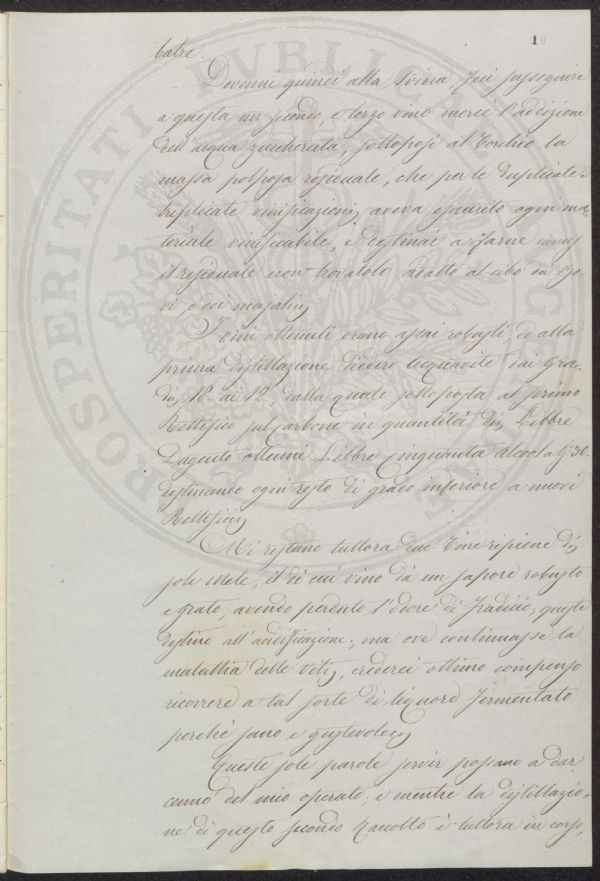 10
batre.
Divenni quindi alla svina feci susseguire
a questa un secondo, e terzo vino mercè l'addizione
dell'acqua zuccherata; sottoposi al Torchio la
massa polposa residuale, che per le duplicate e
triplicate vinificazioni aveva esaurito ogni ma-
teriale vinificabile, e destinai a farne
il residuale non trovatolo adatto al cibo
vi, o dei majalin
I vini ottenuti erano assai robusti, ed alla
prima distillazione diedero acquavite dai Gra-
di 18. ai 12. dalla quale sottoposta al primo
Rettifico sul Carbone in quantità di Libbre
Dugento ottenni Libbre Cinquanta alcool a G. 36.
destinando ogni resto di grado inferiore a nuovi
Rettifici
Mi restano tuttora due Tine ripiene di
sole Mele, il di cui vino dà un sapore robusto
e grato, avendo perduto l'odore di fradicio, queste
destino all'acidificazione; ma ove continuasse la
malattia delle viti, crederei ottimo compenso
ricorrere a tal sorte di liquore fermentato
perchè sano e gustevole
Queste sole parole servir possano a dar
cenno del mio operato; e mentre la distillazio-
ne di questo secondo Raccolto è tuttora in corso,
PROSPERITATI PVBLICAE